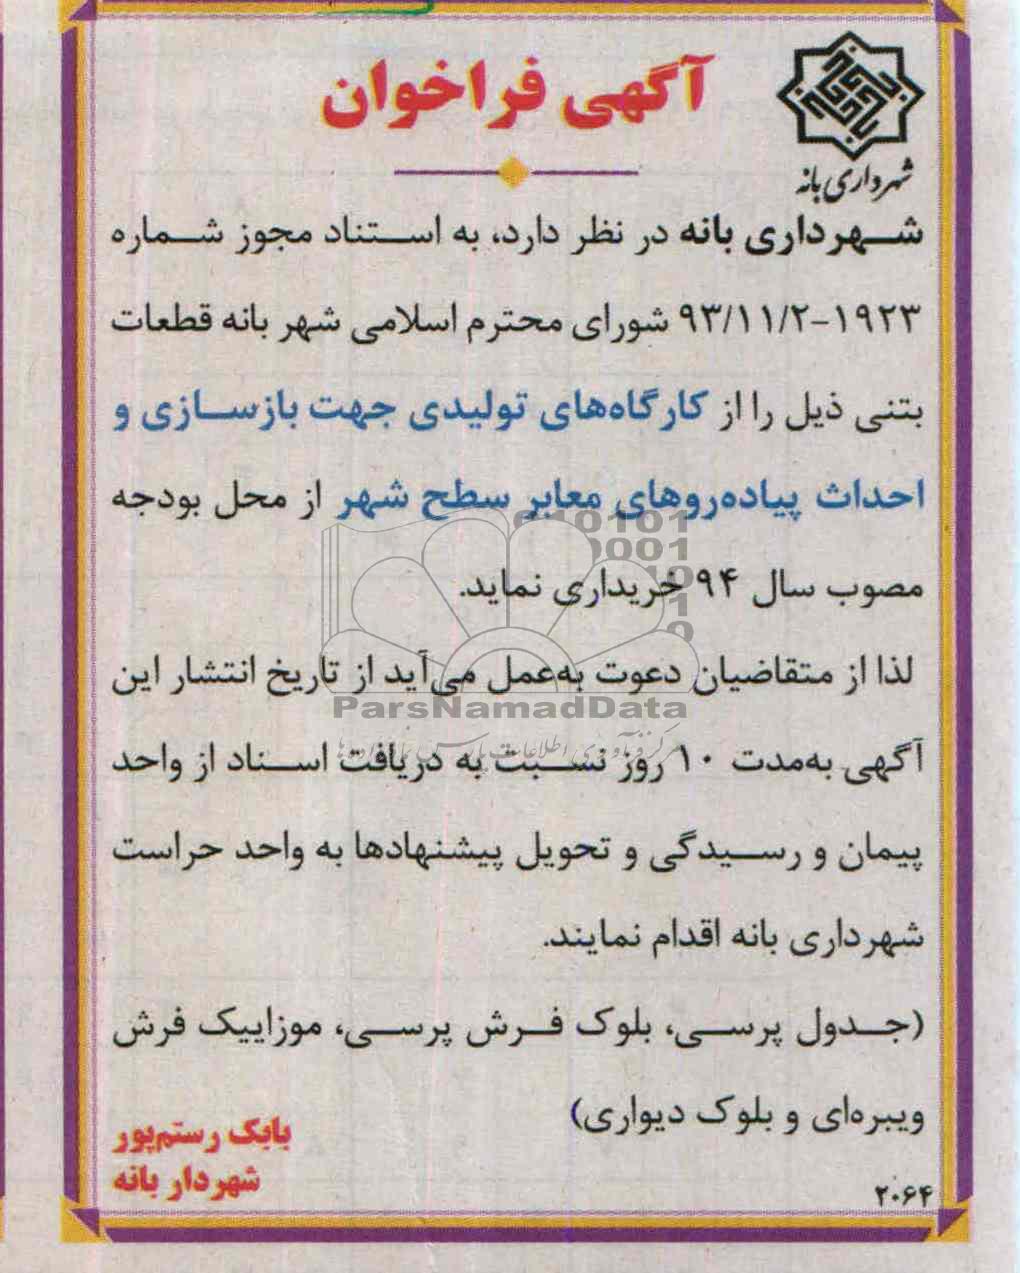 آگهی فراخوان
شهرداری بانه
شهرداری بانه در نظر دارد، به استناد مجوز شماره
۱۹۲۳-۹۳/۱۱/۲ شورای محترم اسلامی شهر بانه قطعات
بتنی ذیل را از کارگاه‌های تولیدی جهت بازسازی و
احداث پیاده‌روهای معابر سطح شهر از محل بودجه
مصوب سال ۹۴ خریداری نماید.
لذا از متقاضیان دعوت به‌عمل می‌آید از تاریخ انتشار این
ParsNamadData
آگهی به‌مدت ۱۰ روز نسبت به دریافت اسناد از واحد
پیمان و رسیدگی و تحویل پیشنهادها به واحد حراست
شهرداری بانه اقدام نمایند.
(جدول پرسی، بلوک فرش پرسی، موزاییک فرش
ویبره‌ای و بلوک دیواری)
بابک رستم‌پور
شهردار بانه
۲۰۶۴